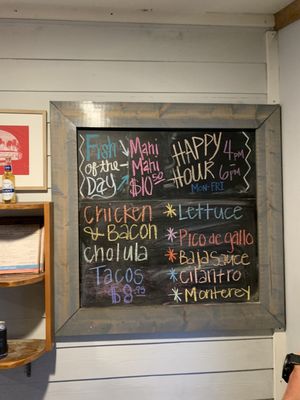 Fish of the Day → Mahi Mahi $10.50
HAPPY HOUR
4pm - 6pm
MON-FRI
Chicken & Bacon Cholula Tacos
* Lettuce
* Pico de gallo
* Baja Sauce
* Cilantro
* Monterey